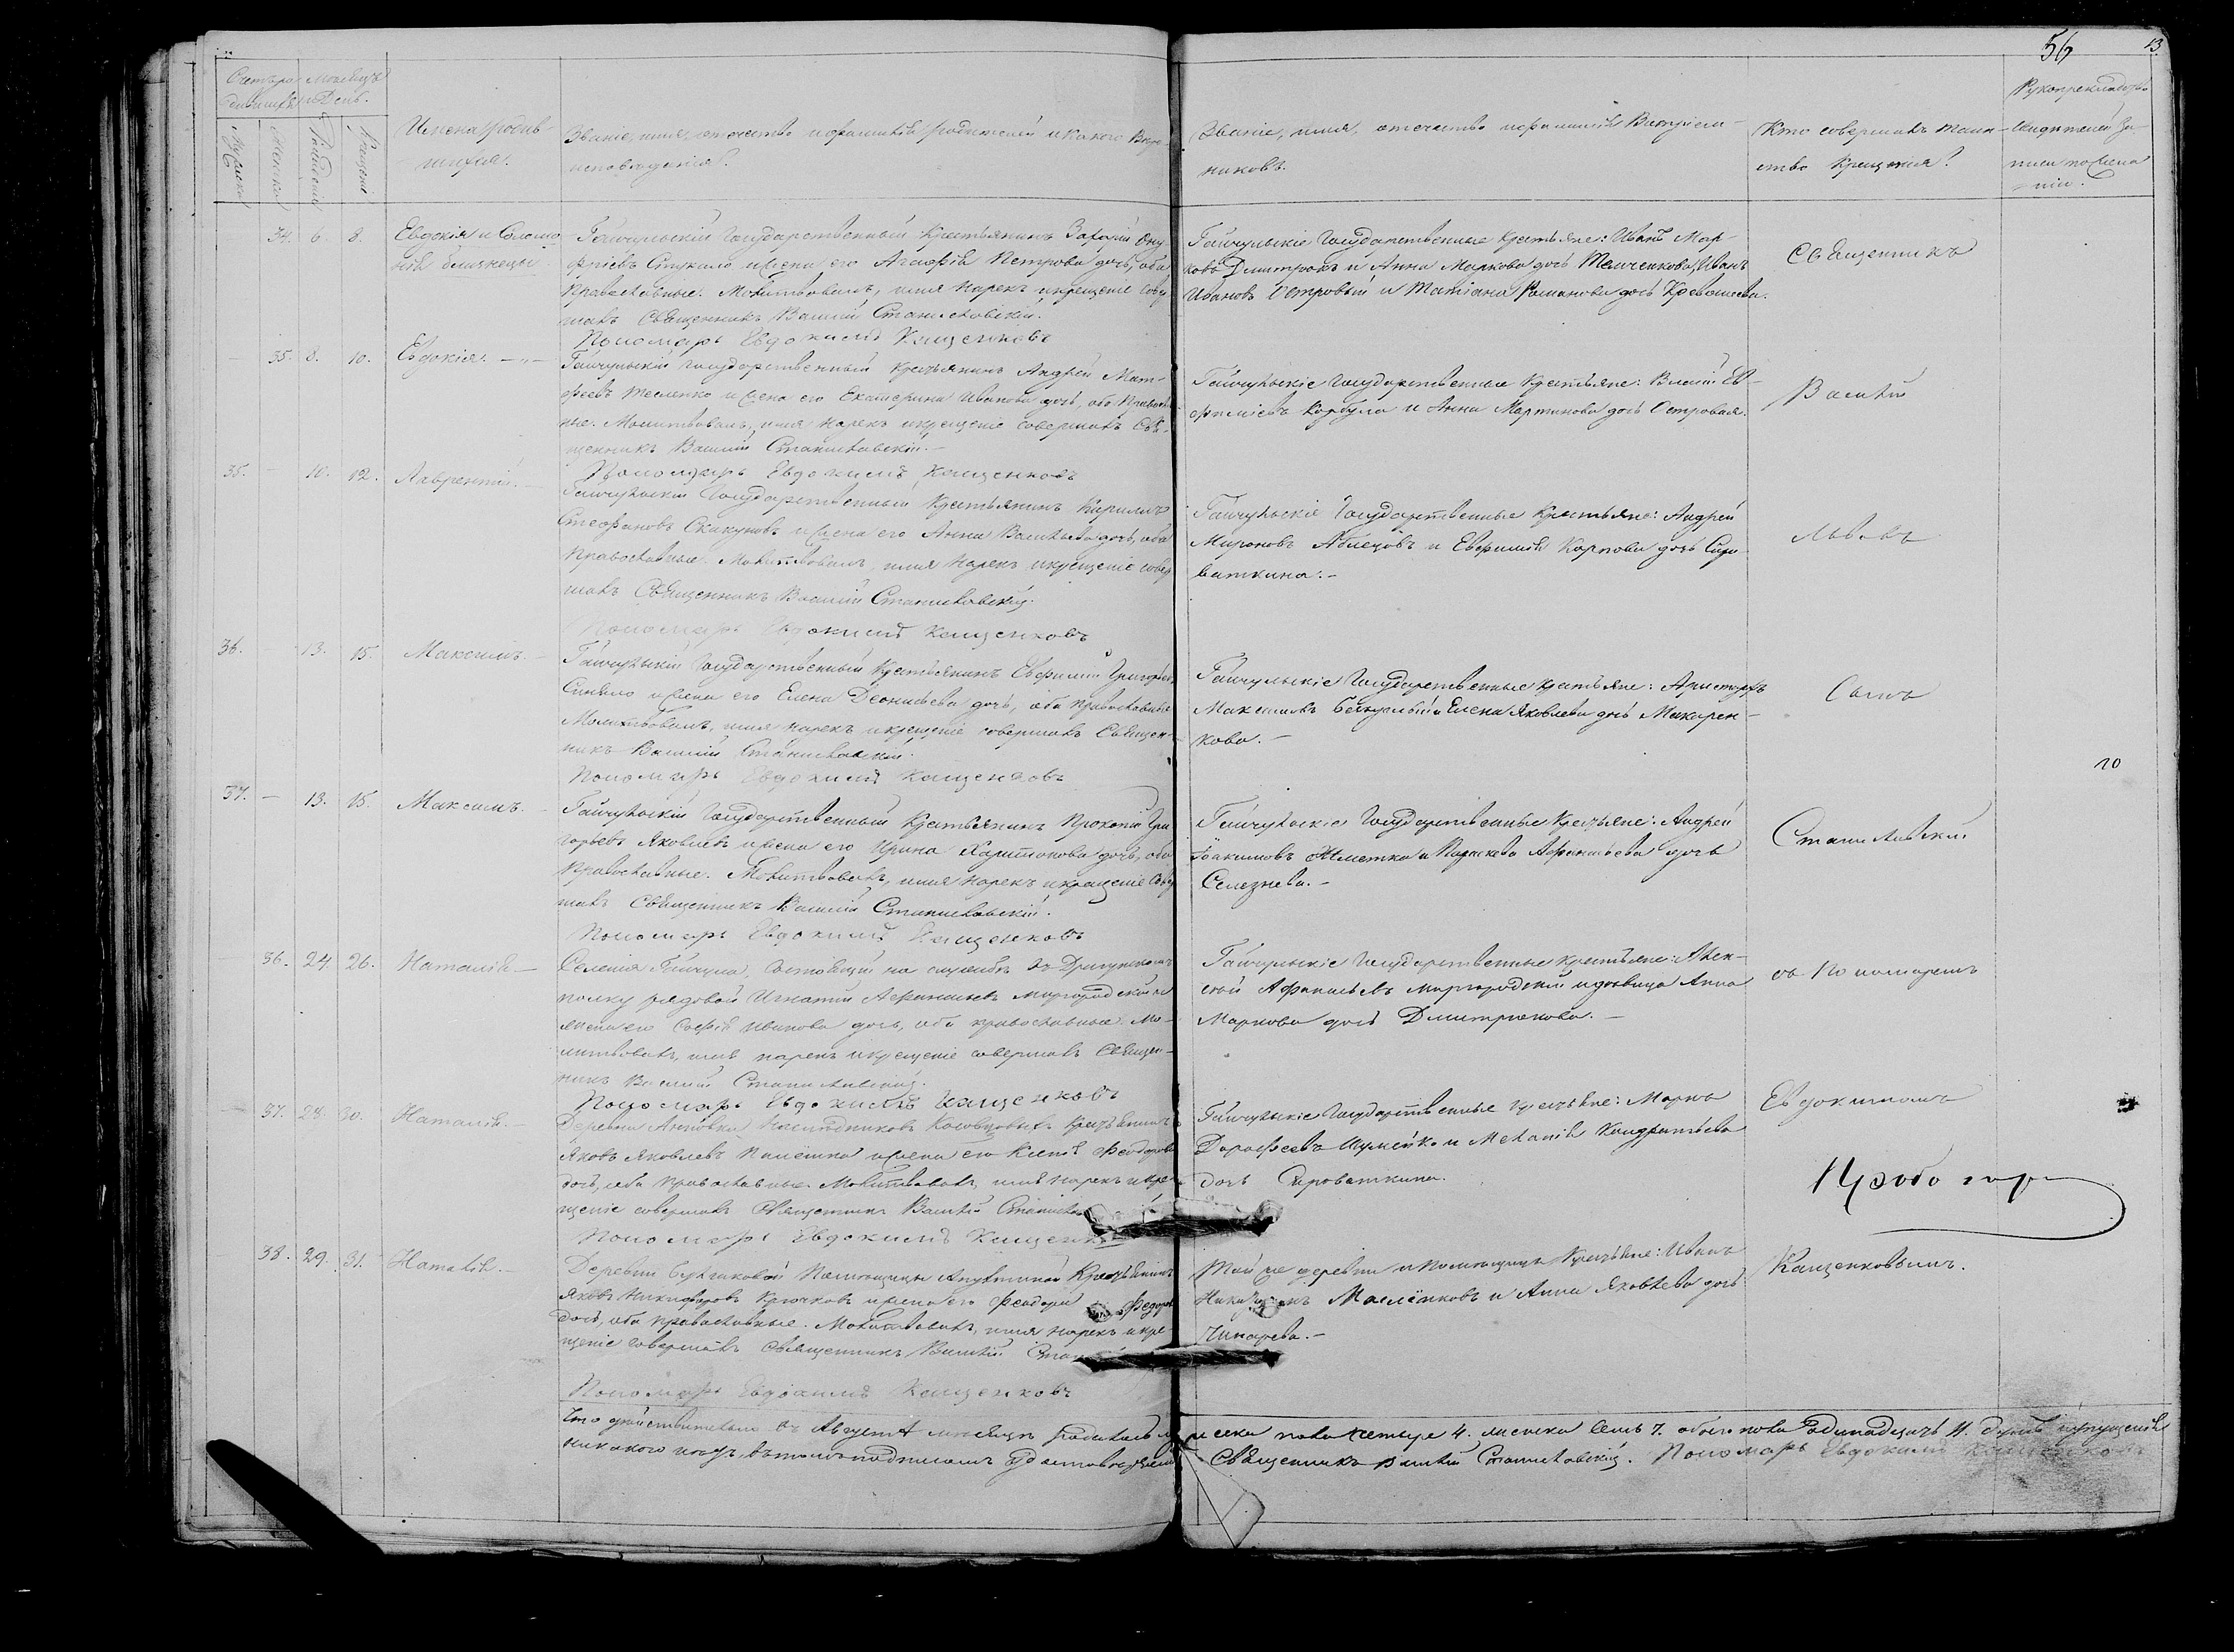 56
13
Счетъ ро- Мѣсяцъ
дившихся и День.
Мужеска
Женска
Рожденія
Крещенія
Имена родив-
шихся.
Званіе, имя, отечество и фамилія родителей и какого Вѣро-
исповѣданія?
Званіе, имя, отечество и фамилія Воспріем-
никовъ.
Кто совершалъ таин-
ство Крещенія?
Рукоприкладство
свидѣтелей за-
писи по желa-
нію.
34. 6. 8. Евдокія и Соломо-
нія близнецы
Гайчульскій Государственный Крестьянинъ Захарій Ону-
фріевъ Стукало и жена его Агафія Петрова дочь, оба
Православные. Молитвовалъ, имя нарекъ и крещеніе совер-
шалъ Священникъ Василій Станиславскій.
Пономарь Евдокимъ Кащенковъ
Гайчульскіе Государственные Крестьяне: Иванъ Мар-
ковъ Дмитрокъ и Анна Маркова дочь Темченкова, Иванъ
Ивановъ Островый и Татіана Романова дочь Кривошеева.
Священникъ
35. 8. 10. Евдокія.
Гайчульскій Государственный Крестьянинъ Андрей Мат-
феевъ Тесленко и жена его Екатерина Иванова дочь, оба Православ-
ные. Молитвовалъ, имя нарекъ и крещеніе совершалъ Свя-
щенникъ Василій Станиславскій.
Пономарь Евдокимъ Кащенковъ
Гайчульскіе Государственные Крестьяне: Василій Ев-
фиміевъ Карбула и Анна Мартинова дочь Островая.
Василій
35. 10. 12. Лаврентій.
Гайчульскій Государственный Крестьянинъ Кирилъ
Стефановъ Скакунъ и жена его Анна Васильева дочь, оба
Православные. Молитвовалъ, имя нарекъ и крещеніе совер-
шалъ Священникъ Василій Станиславскій.
Пономарь Евдокимъ Кащенковъ
Гайчульскіе Государственные Крестьяне: Андрей
Мироновъ Аблецовъ и Евфимія Карпова дочь Сыро-
ваткина.
Львовъ
36. 13. 15. Максимъ.
Гайчульскій Государственный Крестьянинъ Евфимій Григорьевъ
и жена его Елена Деонисьева дочь, оба православные
Молитвовалъ, имя нарекъ и крещеніе совершалъ Священ-
никъ Василій Станиславскій.
Пономарь Евдокимъ Кащенковъ
Гайчульскіе Государственные Крестьяне: Аристархъ
Максимовъ и Елена Яковлева дочь Макарен-
кова.
Сынъ
10
37. 13. 15. Максимъ.
Гайчульскій Государственный Крестьянинъ Прокопій Гри-
горьевъ Яковлевъ и жена его Ирина Харитонова дочь, оба
Православные. Молитвовалъ, имя нарекъ и крещеніе совер-
шалъ Священникъ Василій Станиславскій.
Пономарь Евдокимъ Кащенковъ
Гайчульскіе Государственные Крестьяне: Андрей
Іоакимовъ и Параскева Афанасьева дочь
Селезнева.
Станиславскій
36. 24. 26. Наталія
Селенія Гайчула, состоящій на службѣ въ Драгунскомъ
полку рядовой Игнатій Афанасьевъ Миргородскій и
жена его Софія Иванова дочь, оба православные. Мо-
литвовалъ, имя нарекъ и крещеніе совершалъ Священ-
никъ Василій Станиславскій.
Пономарь Евдокимъ Кащенковъ
Гайчульскіе Государственные Крестьяне: Алек-
сѣй Афанасьевъ Миргородскій и дѣвица Анна
Маркова дочь Дмитрюкова.
съ Пономаремъ
37. 28. 30. Наталія.
Деревни Антовки Крестьянинъ
Яковъ Яковлевъ и жена его Ксенія Феодорова
дочь, оба православные. Молитвовалъ, имя нарекъ и кре-
щеніе совершалъ Священникъ Василій
Пономарь Евдокимъ
Гайчульскіе Государственные Крестьяне: Марко
Дорофеевъ Шумейко и Меланія Кондратьева
дочь Сыроваткина.
Евдокимомъ
38. 29. 31. Наталія.
Деревни Помѣщицы Крестьянинъ
Яковъ Никифоровъ Крючковъ и жена его Феодора Федоро
дочь, оба православные. Молитвовалъ, имя нарекъ и кре-
щеніе совершалъ Священникъ Василій
Пономарь Евдокимъ Кащенковъ
Той же деревни и помѣщицы Крестьяне: Иванъ
Маслёнковъ и Анна Яковлева дочь
Чинарева.
Кащенковымъ.
Что дѣйствительно въ Августѣ мѣсяцѣ родилось м
жеска пола четыре 4. женска семь 7. обоего пола одинадцать 11. душъ и пропущенія
никакого нѣтъ въ томъ подписомъ удостовѣряемъ
Священникъ Василій Станиславскій. Пономарь Евдокимъ Кащенковъ